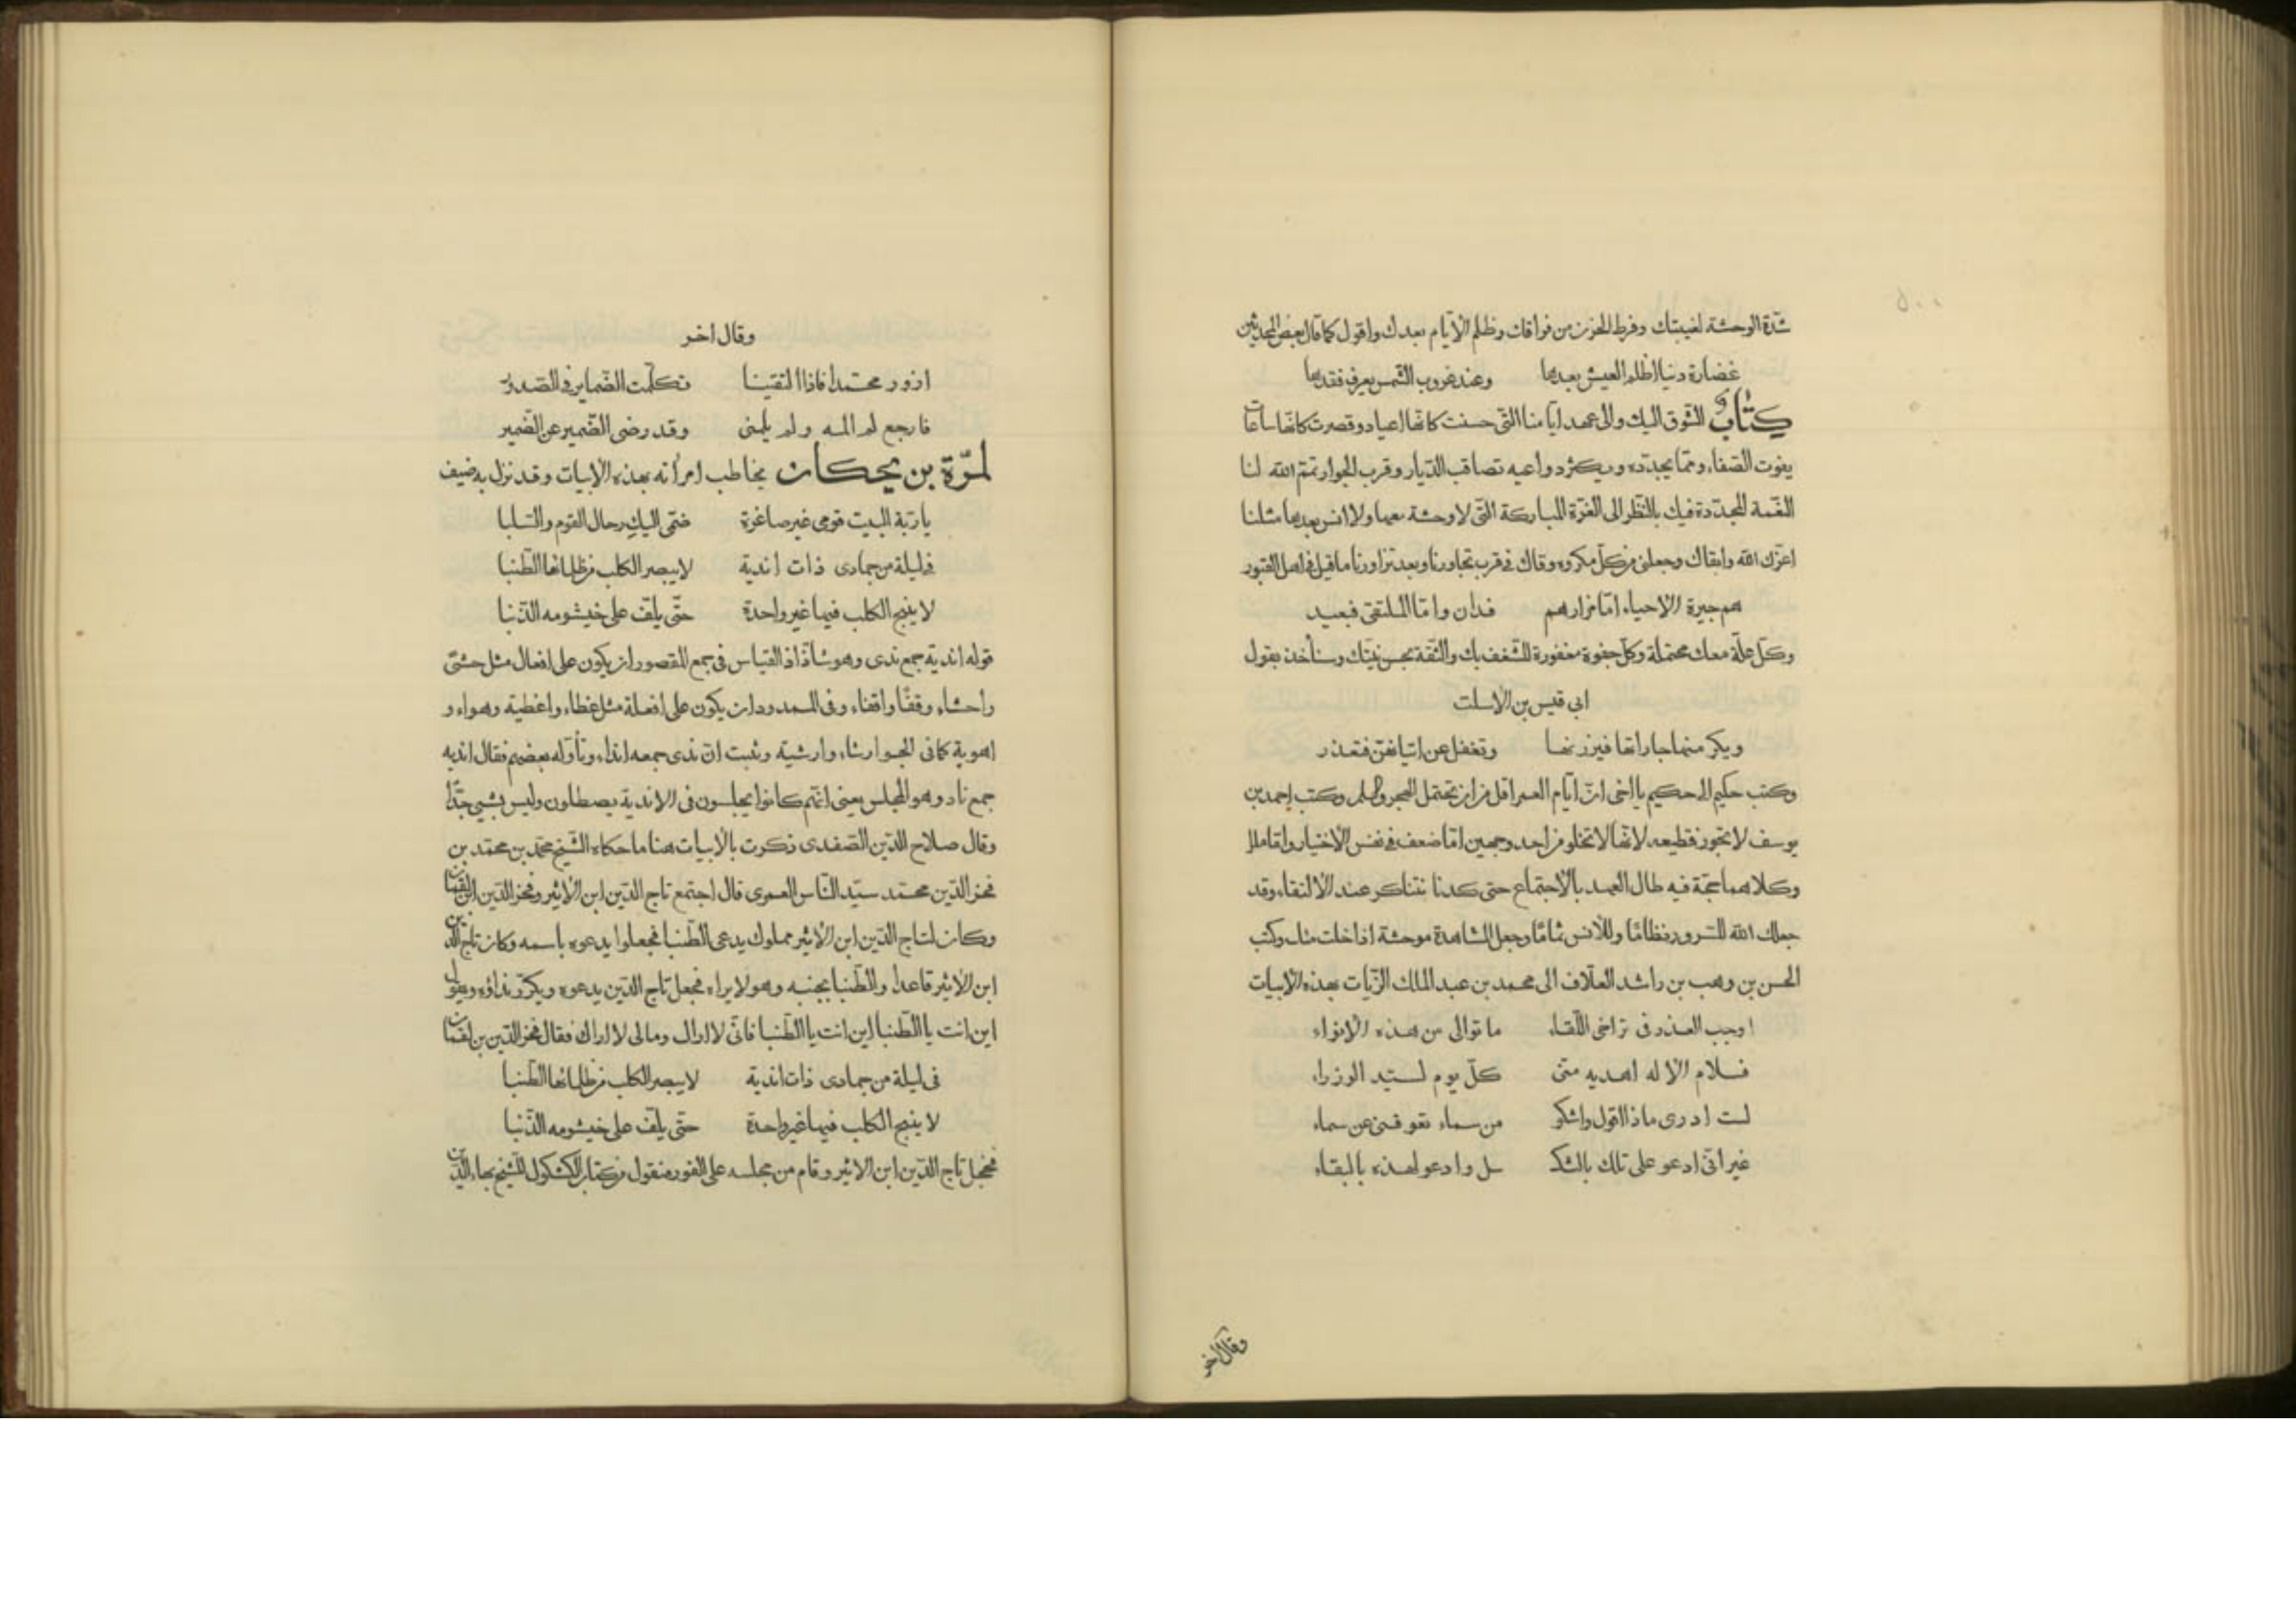 شدّة الوحشة لغيبتك وفرط الحزن من فراقك وظلم الأيّام بعدك واقول كما قال بعض المحدثين
غضارة دنيا اظلم العيش بعدها وعند غروب الشمس يعرف فقدها
كتابٌ الشوق اليك والى عهد ايّامنا التى حسنت كانها اعياد وقصرت كانها ساعات
يفوت الصفاء وممّا يجدّده ويكثر دواعيه تصاقب الديار وقرب الجوار تمّم الله لنا
النعمة المجدّدة فيك بالنظر الى الغرّة المباركة التى لا وحشة معها ولا انس بعدها مثلنا
اعزّك الله وابقاك وجعلنى من كل مكروه وقاك فى قرب تجاورنا وبعد تزاورنا ما قيل فى اهل القبور
هم جيرة الاحياء امّا مزارهم فدان وامّا الملتقى فبعيد
وكلّ علّة معك محتملة وكلّ جفوة مغفورة للشغف بك والثقة بحسن نيّتك وسنأخذ بقول
ابى قيس بن الاسلت
ويكرمنها جاراتها فيزرنها وتغفل عن اتيانهنّ فتعذر
وكتب حكيم الى حكيم يا اخى انّ ايّام العمر اقل من ان تحتمل الهجر والسلم وكتب احمد بن
يوسف لا تجوز قطيعه لانها لا تخلو من احد وجهين امّا ضعف فى نفس الاختيار وامّا ملل
وكلاهما حجّة فيه طال العهد بالاجتماع حتى كدنا نتناكر عند الالتقاء وقد
جعلك الله للسرور نظامًا وللانس تمامًا وجعل المشاهدة موحشة اذا خلت منك وكتب
الحسن بن وهب بن راشد العلّاف الى محمد بن عبد الملك الزيّات بهذه الابيات
اوجب العذر فى تراخى اللّقاء ما توالى من هذه الانواء
فسلام الاله اهديه منّى كلّ يوم لسيّد الوزراء
لست ادرى ماذا اقول واشكو من سماء تعوقنى عن سماء
غير انّى ادعو على تلك بالثكـ ـل وادعو لهذه بالبقاء
وقال اخر
وقال اخر
ازور محمّدا فاذا التقينا تكلّمت الضماير فى الصدور
فارجع لم المه ولم يلمنى وقد رضى الضمير عن الضمير
لمرّة بن محكان يخاطب امرأته بهذه الابيات وقد نزل به ضيف
يا ربّة البيت قومى غير صاغرة ضمّى اليكِ رحال القوم والسلبا
فى ليلة من جمادى ذات اندية لا يبصر الكلب من ظلمائها الطّنبا
لا ينبح الكلب فيها غير واحدة حتّى يلفّ على خيشومه الذّنبا
قوله اندية جمع ندى وهو شاذّ اذ القياس فى جمع المقصور ان يكون على افعال مثل حشىّ
واحشاء وقفًا واقفاء وفى الممدود ان يكون على افعلة مثل غطاء واغطية وهواء و
اهوية كما فى الجوارشاء وارشية وثبت انّ ندى جمعه انداء وتأوّله بعضهم فقال اندية
جمع ناد وهو المجلس يعنى انّهم كانوا يجلسون فى الاندية يصطلون وليس بشيئ جدًّا
وقال صلاح الدين الصفدى ذكرت بالابيات هنا ما حكاه الشيخ محمّد بن محمّد بن
فخر الدّين محمّد سيّد الناس العمرى قال اجتمع تاج الدين ابن الاثير وفخر الدّين ابن لقمان
وكان لتاج الدّين ابن الاثير مملوك يدعى الطّنبا فجعلوا يدعوه باسمه وكان تاج الدين
ابن الاثير قاعدا والطنبا بجنبه وهو لا يراه فجعل تاج الدّين يدعوه ويكرّر نداؤه ويقول
اين انت يا الطنبا اين انت يا الطنبا فانّى لا اراك ومالى لا اراك فقال فخر الدّين بن لقمان
فى ليلة من جمادى ذات اندية لا يبصر الكلب من ظلمائها الطّنبا
لا ينبح الكلب فيها غير واحدة حتّى يلفّ على خيشومه الذّنبا
فخجل تاج الدّين ابن الاثير وقام من مجلسه على الفور منقول من كتاب الكشكول للشيخ بهاء الدّين